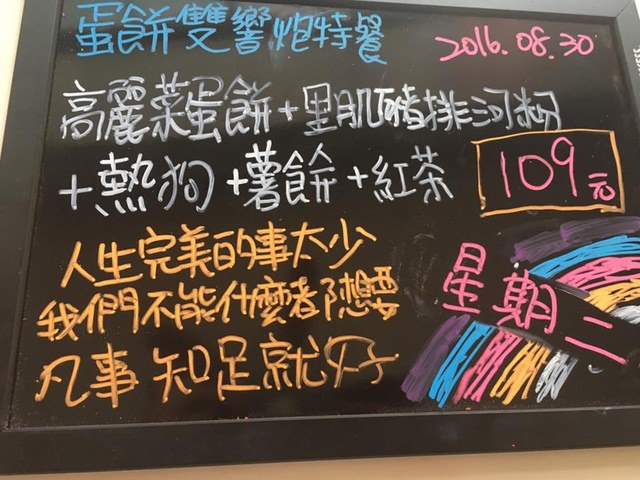 蛋餅雙響炮特餐
2016.08.30
高麗菜蛋餅+里肌豬排河粉
+熱狗+薯餅+紅茶
109元
人生完美的事太少
我們不能什麼都想要
凡事知足就好
星期二